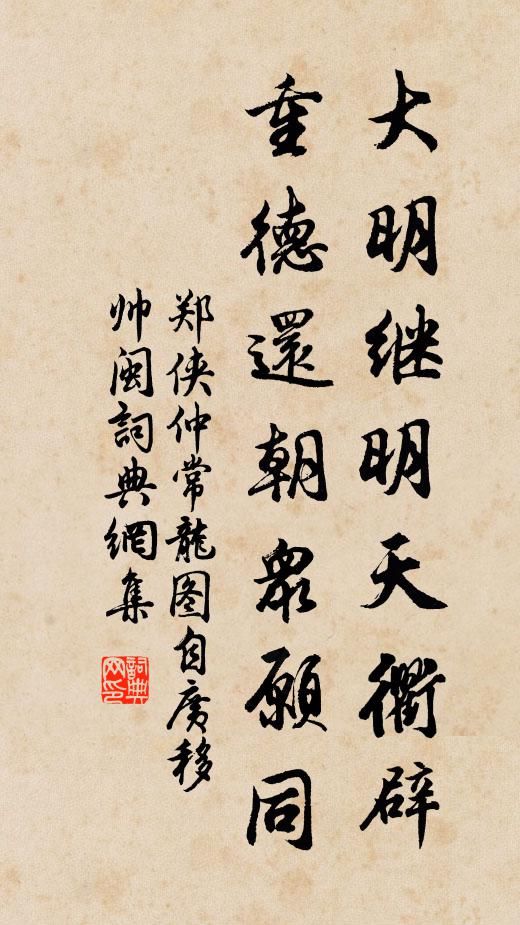 大明继明天衢辟
重德還朝衆願同
郑侠仲常龍图自廣移
帅闽詞典網集
詞典网印